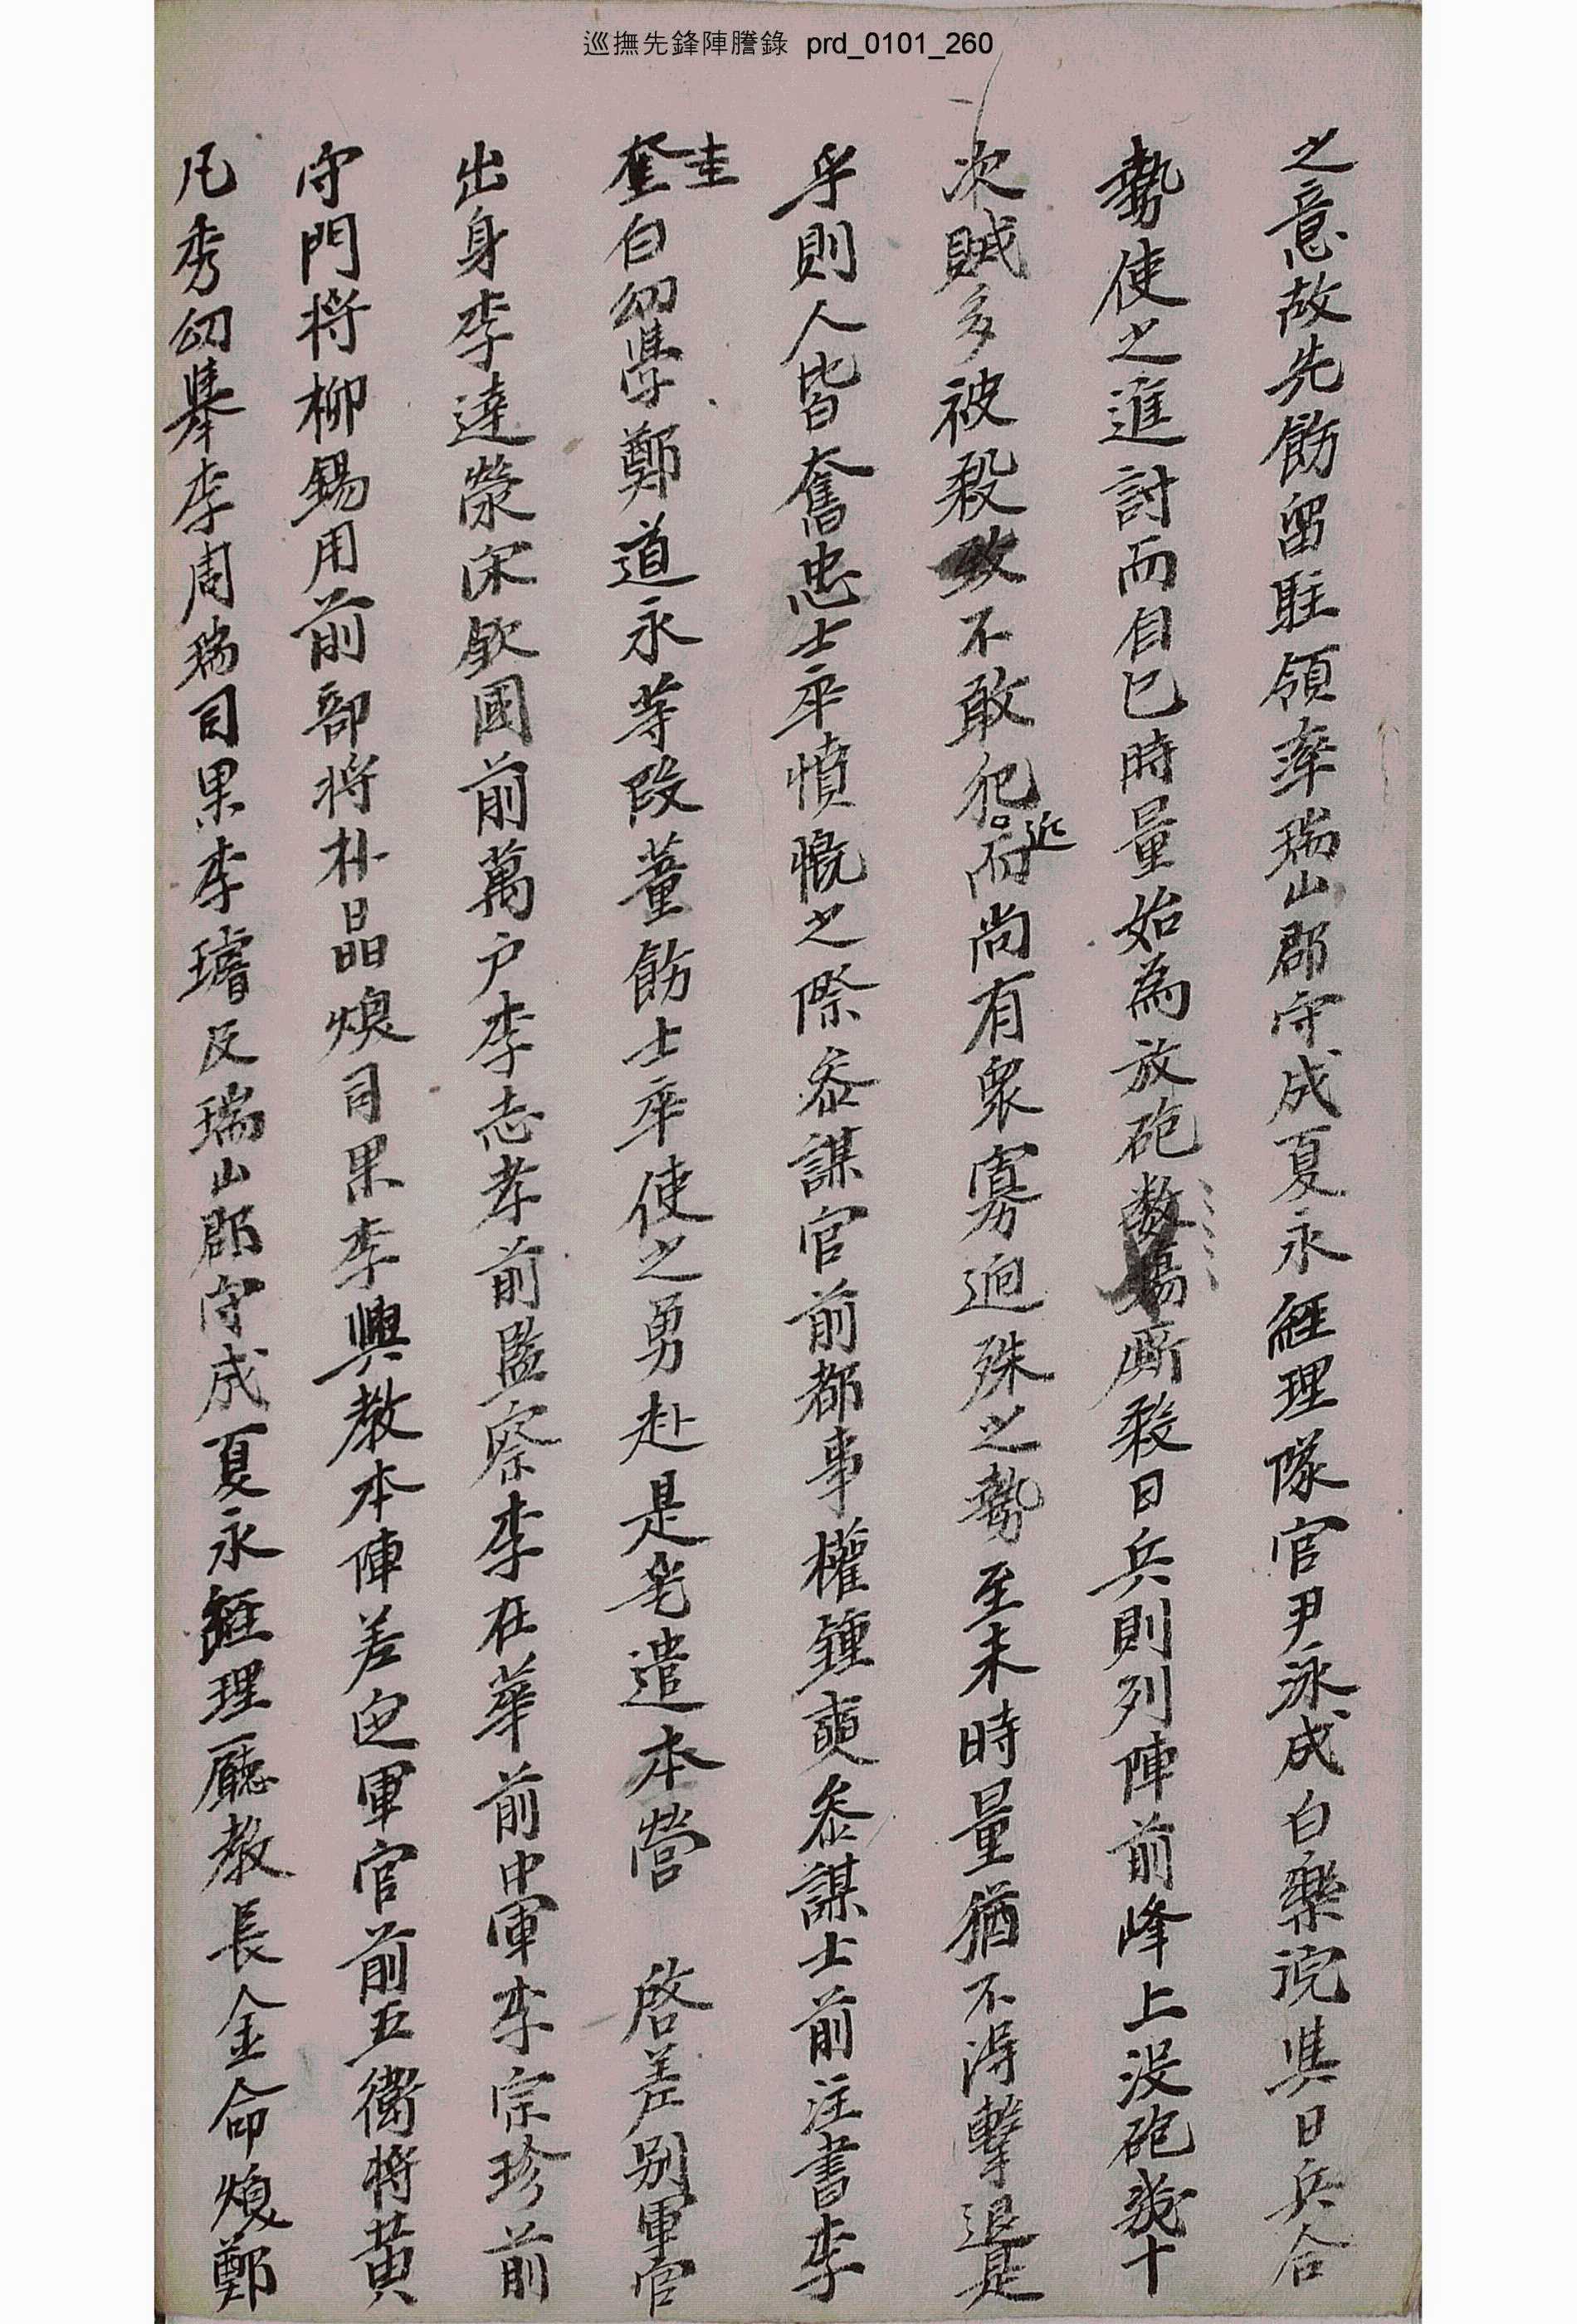 巡撫先鋒陣謄錄 prd_0101_260
之意故先飭留駐領率瑞山郡守成夏永經理隊官尹泳成白樂浣與日兵合
勢使之進討而自巳時量始爲放砲数塲厮殺日兵則列陣前峰上沒砲幾十
次賊多被殺攻不敢犯近而尚有衆寡逈殊之勢至未時量猶不淂擊退是
乎則人皆奮忠士卒憤慨之際叅謀官前都事權鍾奭叅謀士前注書李
圭白幼學鄭道永等段董飭士卒使之勇赴是乎遣本營 啓差別軍官
出身李達榮宋欽國前萬戶李志孝前監察李在華前中軍李宗珍前
守門將柳錫用前部將朴晶煥司果李興教本陣差定軍官前五衛將黃
凡秀幼學李周瑞司果李璿及瑞山郡守成夏永經理廳教長金命煥鄭